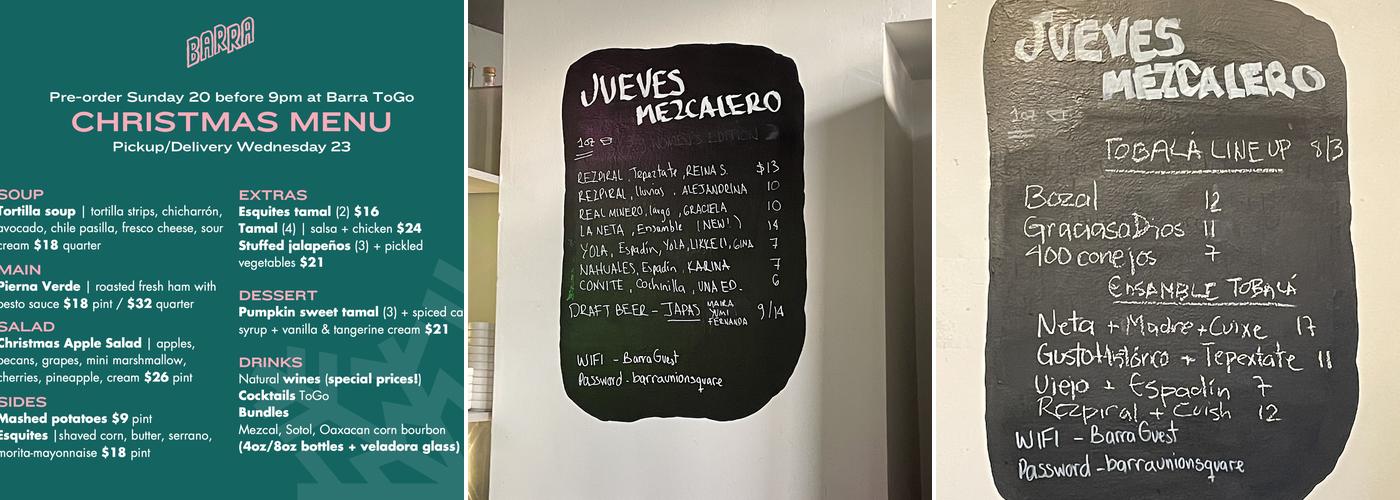 BARRA
Pre-order Sunday 20 before 9pm at Barra ToGo
CHRISTMAS MENU
Pickup/Delivery Wednesday 23
SOUP
Tortilla soup | tortilla strips, chicharrón,
avocado, chile pasilla, fresco cheese, sour
cream $18 quarter
MAIN
Pierna Verde | roasted fresh ham with
pesto sauce $18 pint / $32 quarter
SALAD
Christmas Apple Salad | apples,
pecans, grapes, mini marshmallow,
cherries, pineapple, cream $26 pint
SIDES
Mashed potatoes $9 pint
Esquites |shaved corn, butter, serrano,
morita-mayonnaise $18 pint
EXTRAS
Esquites tamal (2) $16
Tamal (4) | salsa + chicken $24
Stuffed jalapeños (3) + pickled
vegetables $21
DESSERT
Pumpkin sweet tamal (3) + spiced ca
syrup + vanilla & tangerine cream $21
DRINKS
Natural wines (special prices!)
Cocktails ToGo
Bundles
Mezcal, Sotol, Oaxacan corn bourbon
(4oz/8oz bottles + veladora glass)
JUEVES
MEZCALERO
1oz WOMEN'S EDITION
REZPIRAL, Tepeztate, REINA S. $13
REZPIRAL, lluvias, ALEJANDRINA 10
REAL MINERO, largo, GRACIELA 10
LA NETA, Ensamble (NEW!) 14
YOLA, Espadín, YOLA, LIKKE(), GINA 7
NAHUALES, Espadín, KARINA 7
CONVITE, Cochinilla, UNA ED. 6
DRAFT BEER - JAPAS MAIRA YUMI FERNANDA 9/14
WIFI - BarraGuest
Password - barraunionsquare
JUEVES
MEZCALERO
1oz
TOBALÁ LINE UP 8/3
Bozal 12
GraciasaDios 11
400 conejos 7
ENSAMBLE TOBALÁ
Neta + Madre + Cuixe 17
GustoHistórico + Tepextate 11
Viejo + Espadín 7
Rezpiral + Cuish 12
WIFI - BarraGuest
Password - barraunionsquare